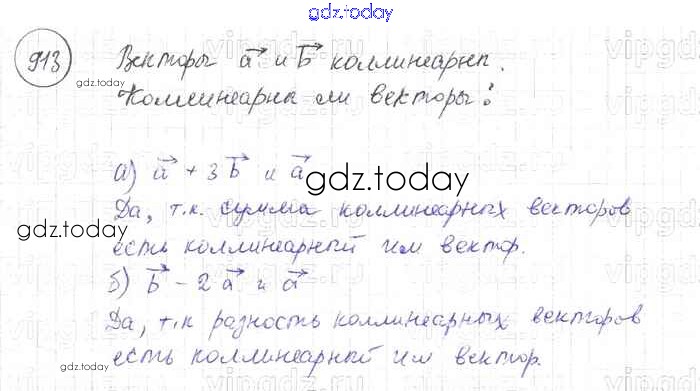 gdz.today
913
Векторы a и b коллинеарны.
gdz.today
Коллинеарны ли векторы:
а) a + 3b и a
gdz.today
Да, т.к. сумма коллинеарных векторов
gdz.today
есть коллинеарный им вектор.
б) b - 2a и a
Да, т.к разность коллинеарных векторов
есть коллинеарный им вектор.
gdz.today